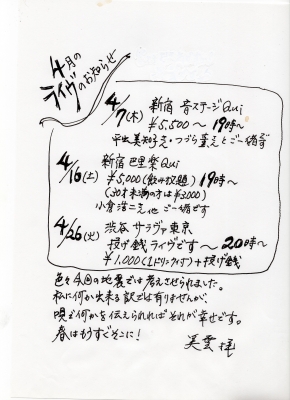 4月の
ライヴのお知らせ
4/7(木) 新宿 音ステージQui
¥5,500〜 19時〜
平出美知子さん・つづら葦さんとご一緒です
4/16(土) 新宿 巴里祭Qui
¥5,000(飲み放題) 19時〜
(30才未満の方は¥3,000)
小倉浩二さん他 ご一緒です
4/26(火) 渋谷 サラヴァ東京
投げ銭ライヴです〜 20時〜
¥1,000(1ドリンクつき)+投げ銭
色々今回の地震では考えさせられました。
私に何が出来る訳では有りませんが、
唄で何かを伝えられればそれが幸せです。
春はもうすぐそこに!
美雲